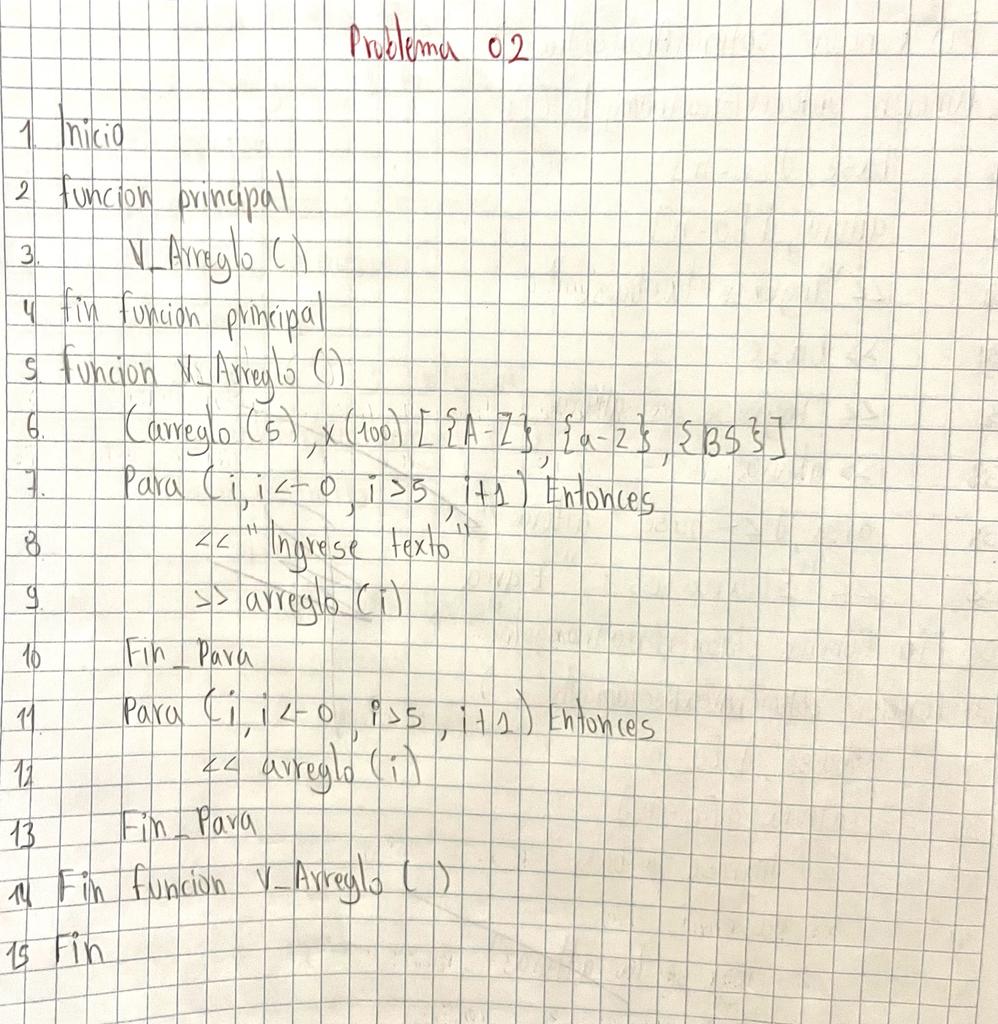 Problema 02
1 Inicio
2 funcion principal
3. V_Arreglo ()
4 fin funcion principal
5 funcion V_Arreglo ()
6. (arreglo (5), x (100) [{A-Z}, {a-z}, {BS}]
7. Para (i, i <- 0, i > 5, i+1) Entonces
8 << "Ingrese texto"
9. >> arreglo (i)
10 Fin_Para
11 Para (i, i <- 0, i > 5, i+1) Entonces
12 << arreglo (i)
13 Fin_Para
14 Fin funcion V_Arreglo ()
15 Fin